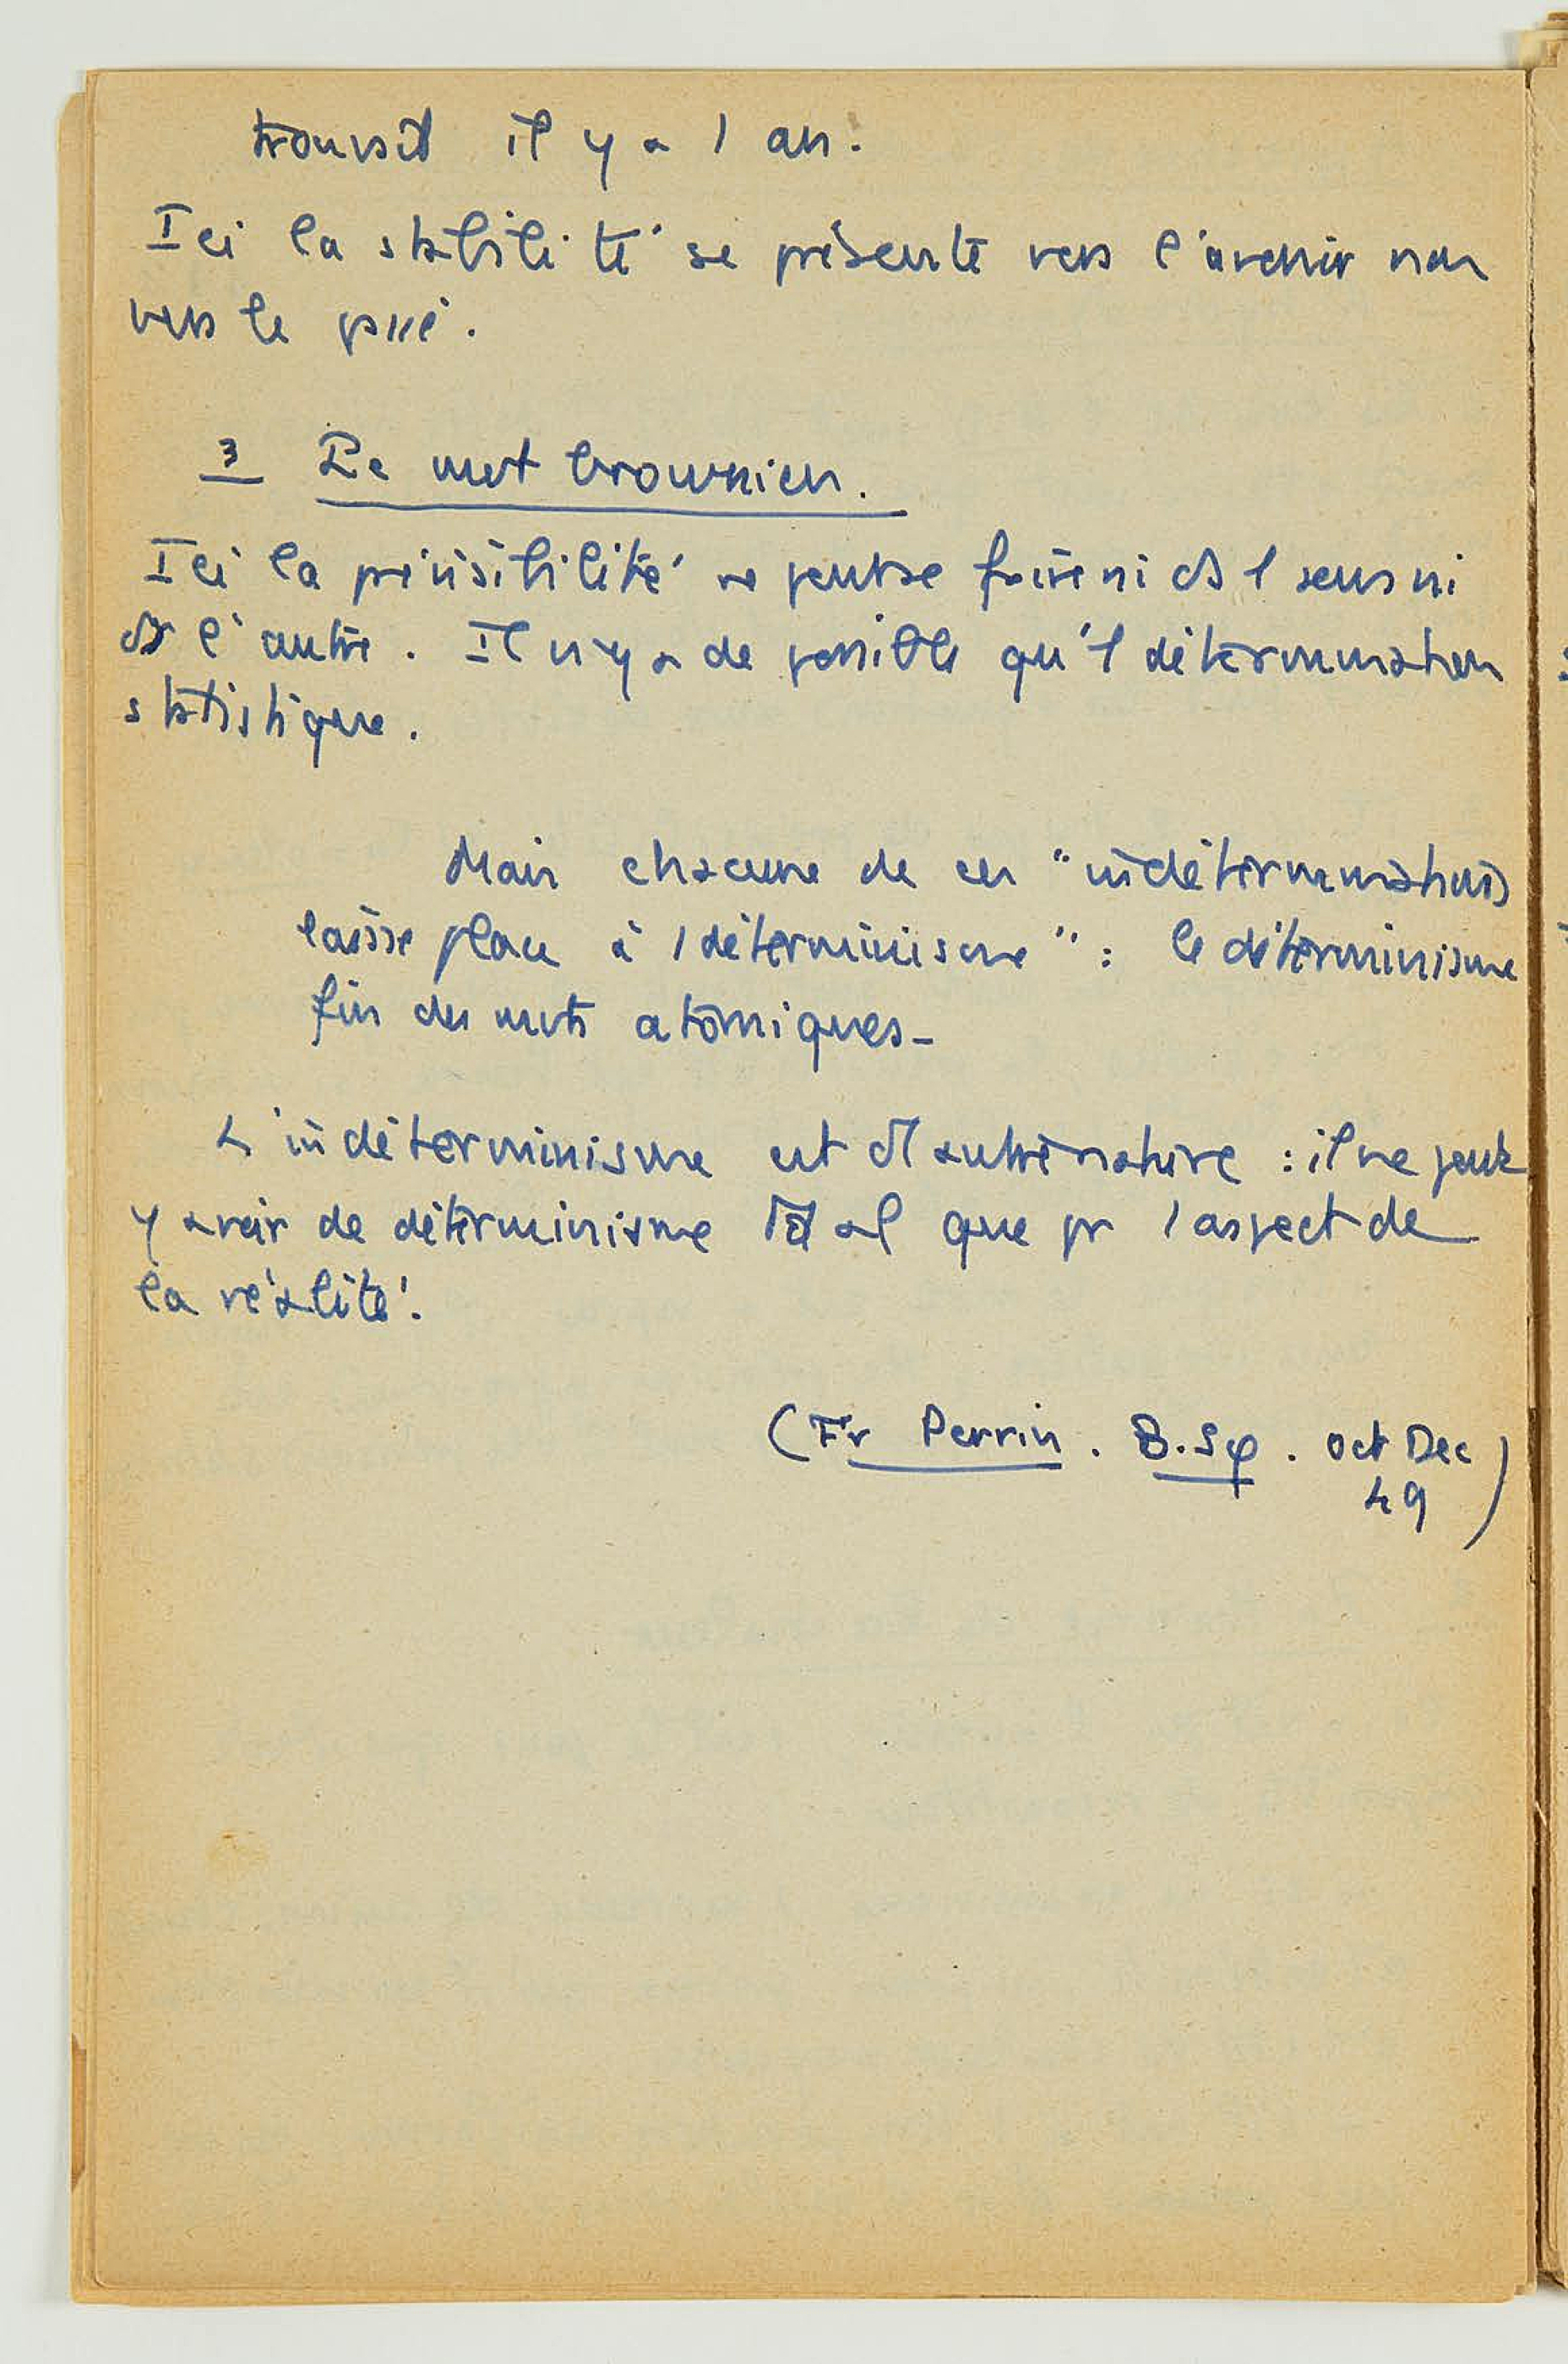 trouvait il y a 1 an.
Ici la stabilité se présente vers l'avenir non
vers le passé.
3 Le mvt brownien.
Ici la prévisibilité ne peut se faire ni ds 1 sens ni
ds l'autre. Il n'y a de possible qu'1 détermination
statistique.
Mais chacune de ces "indéterminations
laisse place à 1 déterminisme" : le déterminisme
fin des mvts atomiques_
L'indéterminisme est d'1 autre nature : il ne peut
y avoir de déterminisme total que pr 1 aspect de
la réalité.
(Fr Perrin. B.Sφ. oct Dec
49)